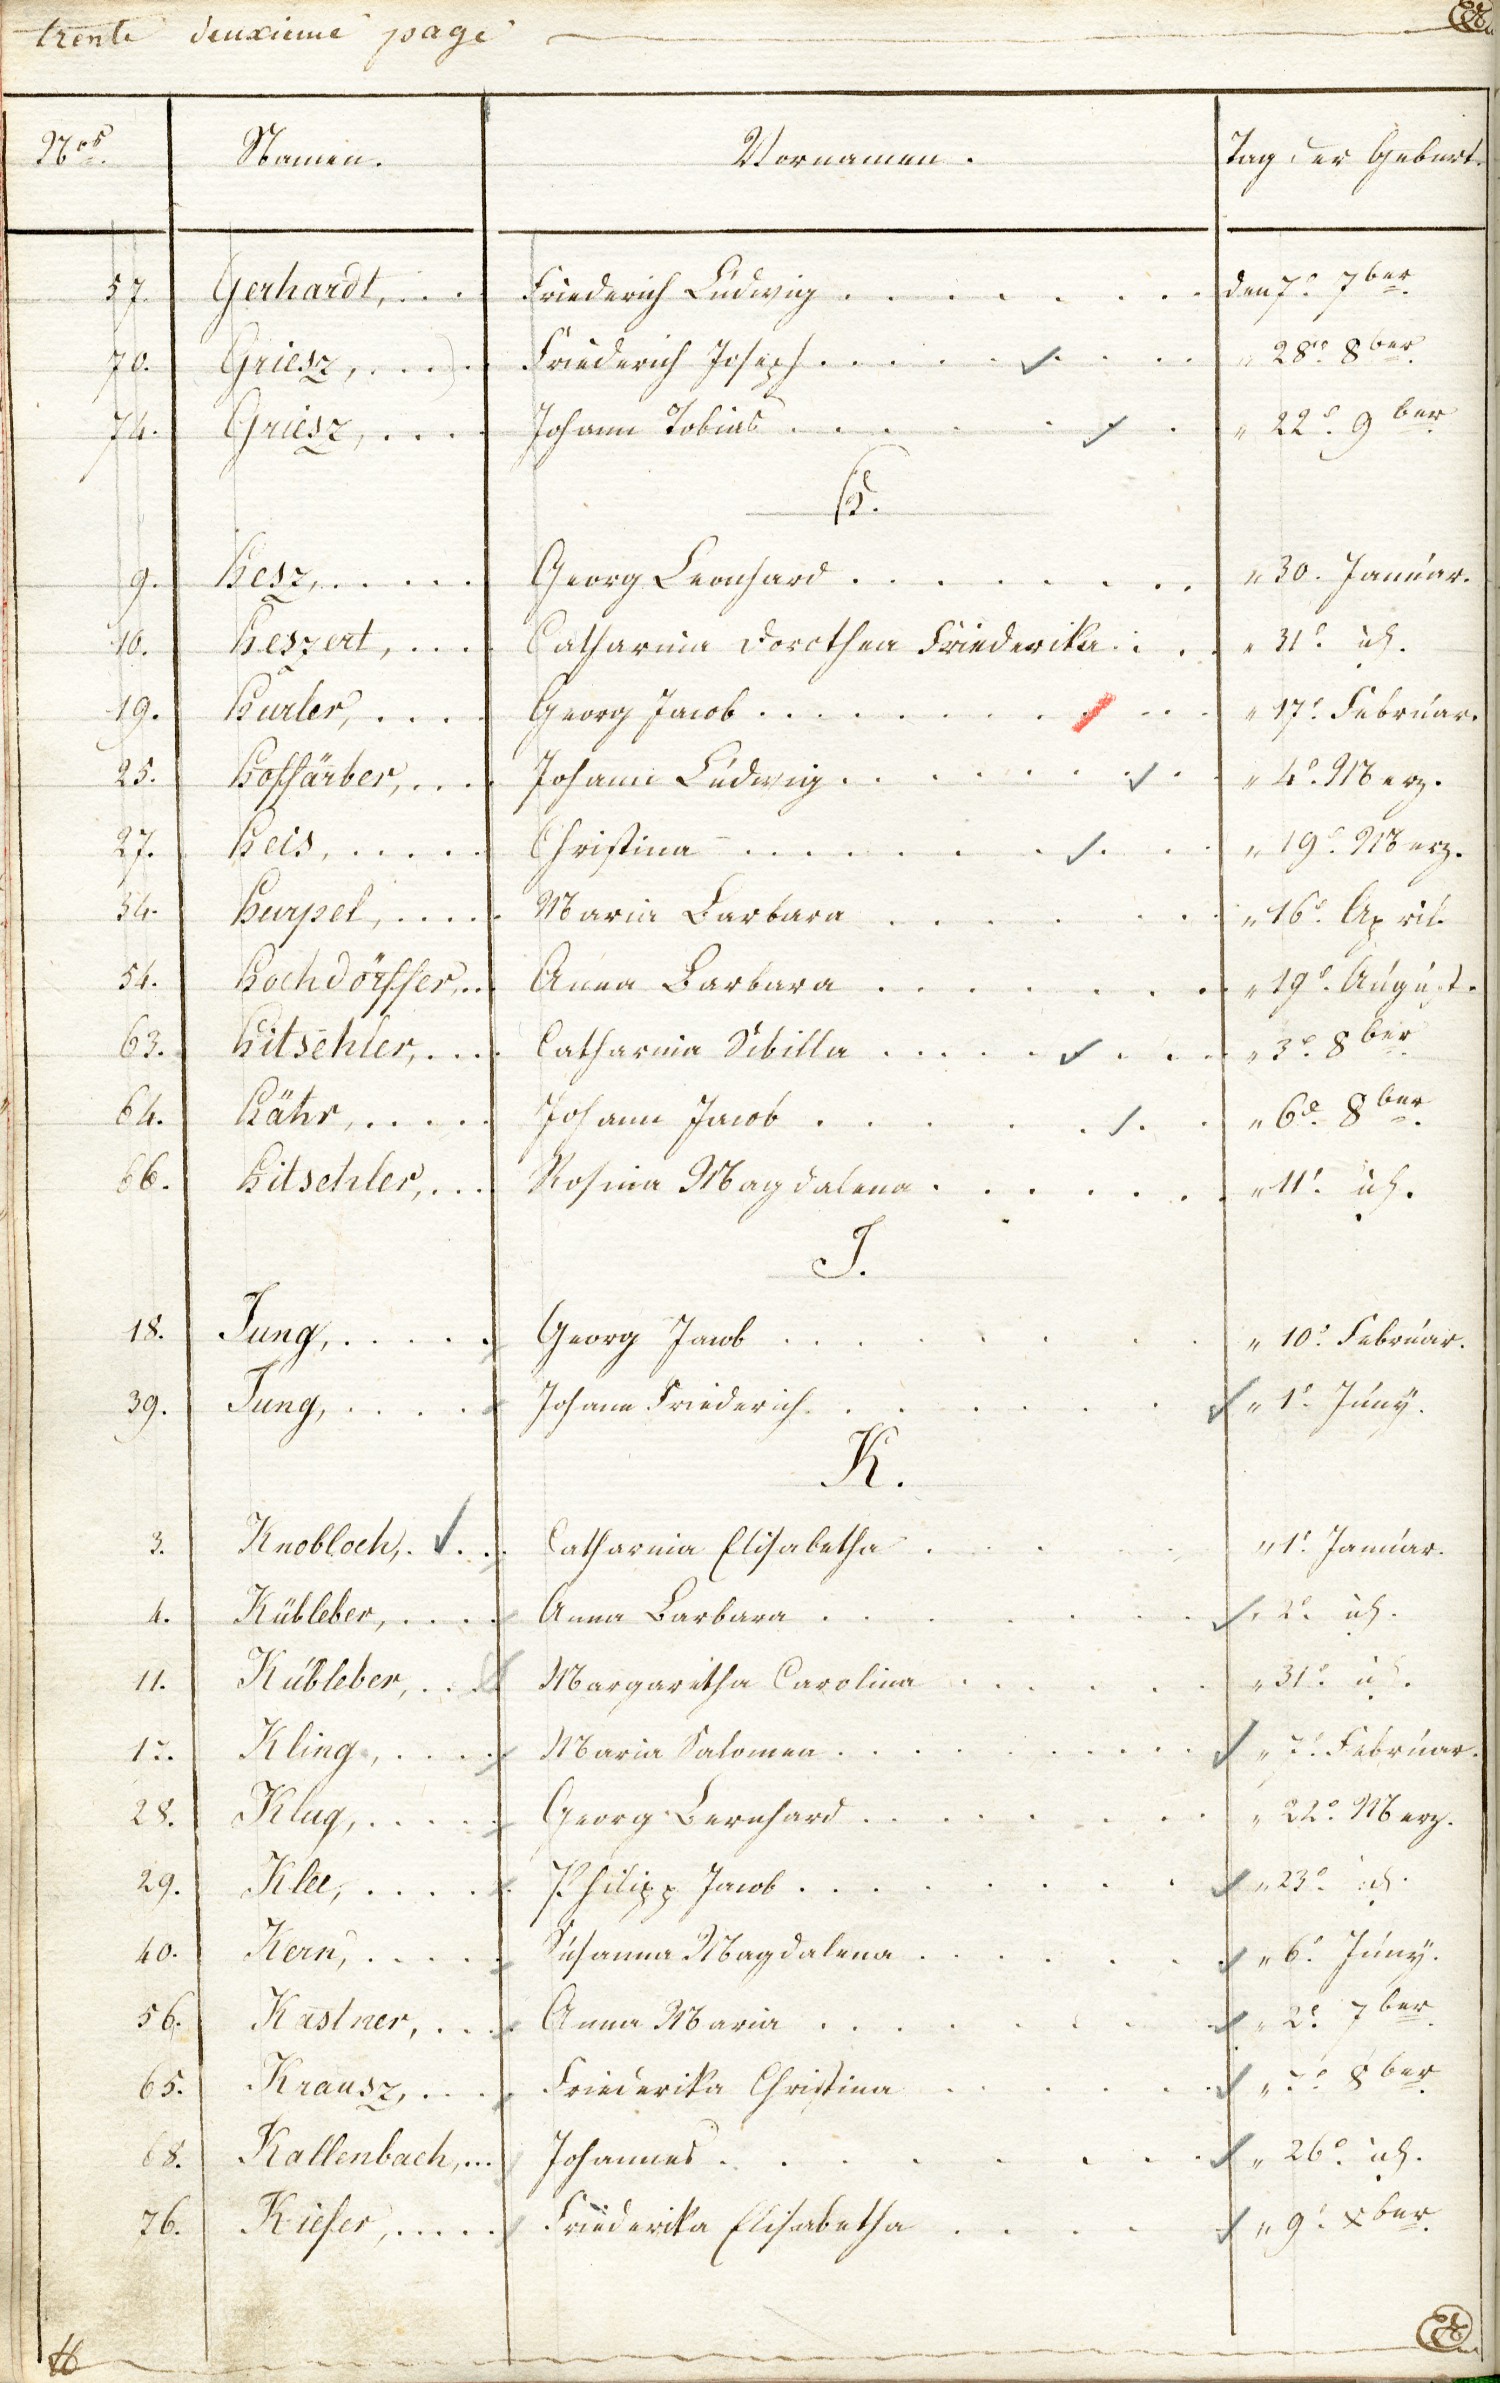 trente deuxieme page
Nos. Namen. Vornamen. Tag der Geburt.
57. Gerhardt, . . . Friederich Ludwig . . . . . . . den 7. 7ber.
70. Griesz, . . . . Friederich Joseph . . . . . . . „ 28. 8ber.
74. Griesz, . . . . Johann Tobias . . . . . . „ 22. 9ber.
H.
9. Hesz, . . . . . Georg Leonhard . . . . . . . . „ 30. Januar.
10. Heszert, . . . . Catharina Dorothea Friederika . . . „ 31. id.
19. Hurler, . . . . Georg Jacob . . . . . . . . . „ 17. Februar.
25. Hoffärber, . . . . Johann Ludwig . . . . . . . „ 4. Merz.
27. Heis, . . . . . Christina . . . . . . . . „ 19. Merz.
34. Hurpel, . . . . . Maria Barbara . . . . . . „ 16. April.
54. Hochdörffer, . . Anna Barbara . . . . . . . „ 19. August.
63. Hitschler, . . . . Catharina Sibilla . . . . . . . „ 3. 8ber.
64. Hähr, . . . . . Johann Jacob . . . . . . „ 6. 8ber.
66. Hitschler, . . . Rosina Magdalena . . . . . . „ 11. id.
J.
18. Jung, . . . . . Georg Jacob . . . . . . . „ 10. Februar.
39. Jung, . . . . Johann Friederich . . . . . . . „ 1. Juny.
K.
3. Knobloch, . . . . Catharina Elisabetha . . . . „ 1. Januar.
4. Kübleber, . . . . Anna Barbara . . . . . . . „ 2. id.
11. Kübleber, . . . Margaretha Carolina . . . . . „ 31. id.
Kling, . . . . Maria Salomea . . . . . . . . „ 7. Februar.
28. Klug, . . . . . Georg Bernhard . . . . . . . „ 22. Merz.
29. Klee, . . . . . Philipp Jacob . . . . . . . . „ 23. id.
40. Kern, . . . . . Susanna Magdalena . . . . . . „ 6. Juny.
56. Kastner, . . . Anna Maria . . . . . . . „ 2. 7ber.
65. Krausz, . . . . Friederika Christina . . . . . „ 8ber.
68. Kallenbach, . . . Johannes . . . . . . . . „ 26. id.
76. Kiefer, . . . . . Friederika Elisabetha . . . . „ 9. xber.